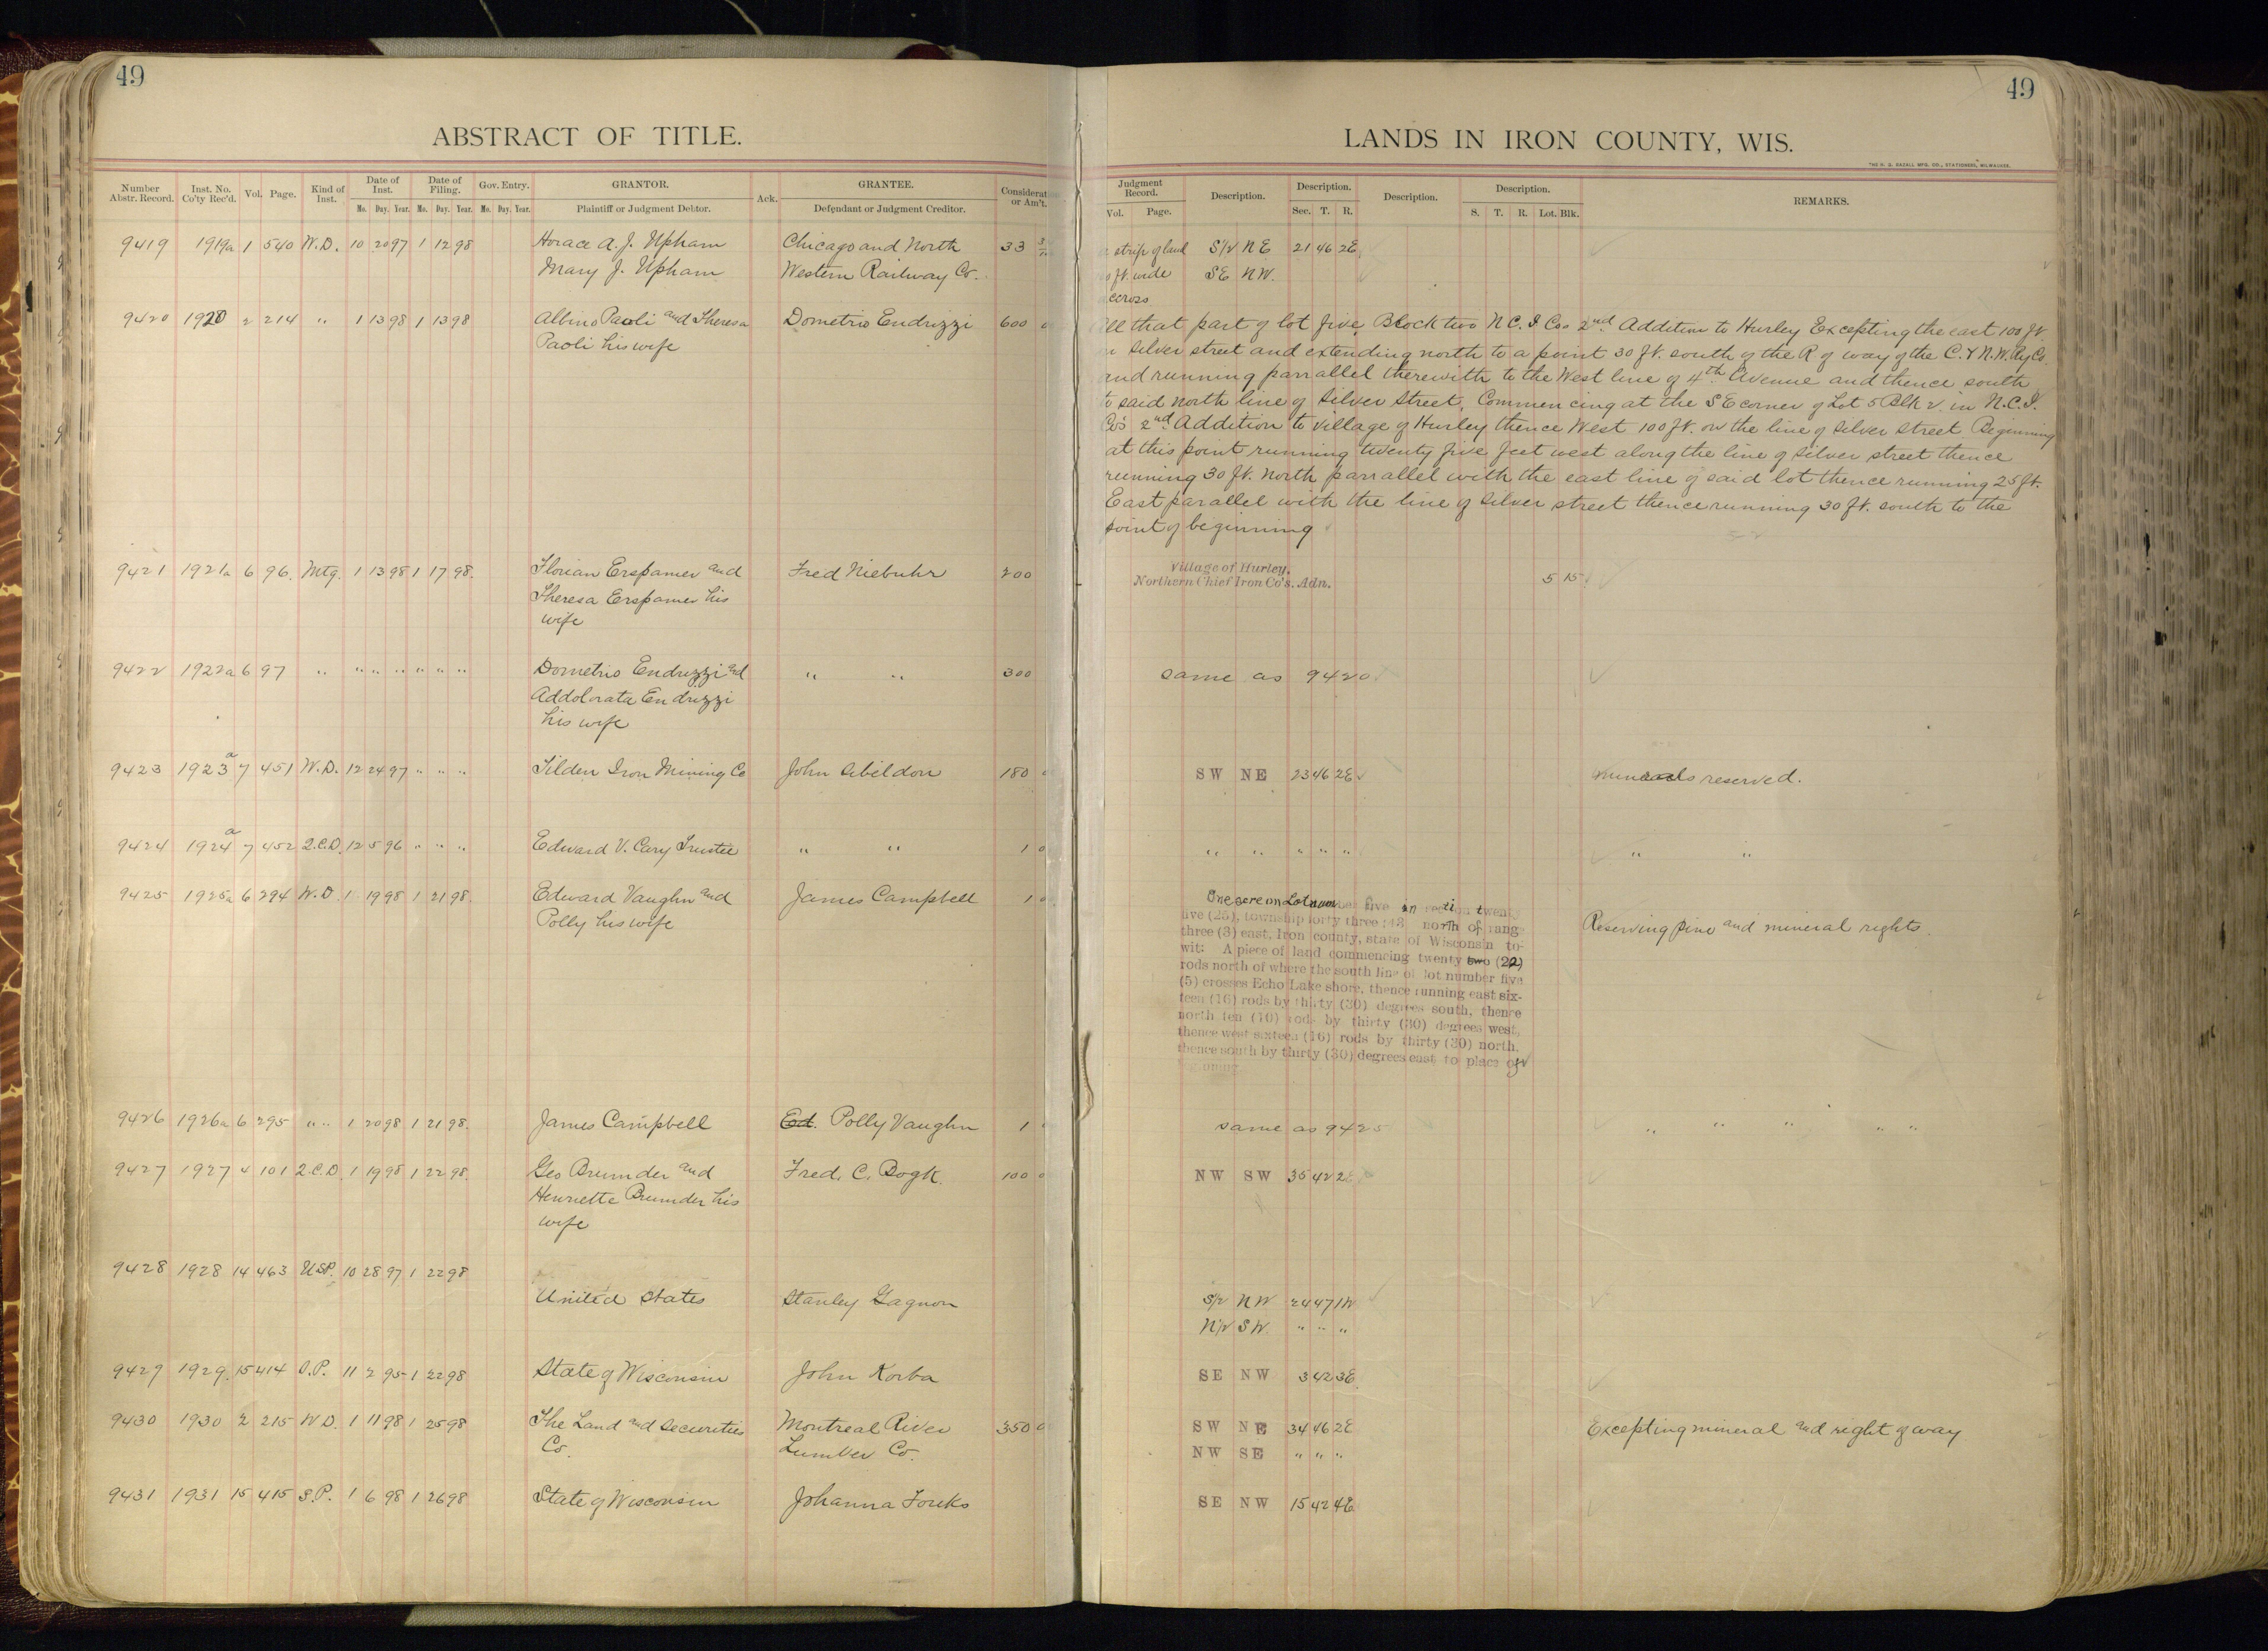 49
ABSTRACT OF TITLE.
Number Abstr. Record. Inst. No. Co'ty Rec'd. Vol. Page. Kind of Inst. Date of Inst. Date of Filing. Gov. Entry. GRANTOR. Ack. GRANTEE. Considerat or Am't.
Mo. Day. Year. Mo. Day. Year. Mo. Day. Year. Plaintiff or Judgment Debtor. Defendant or Judgment Creditor.
9419 1919a 1 540 W.D. 10 20 97 1 12 98 Horace A. J. Upham Chicago and North 33
Mary J. Upham Western Railway Co.
9420 1920 2 214 " 1 13 98 1 13 98 Albino Paoli and Theresa Dometrio Endrizzi 600
Paoli his wife
9421 1921a 6 96. Mtg. 1 13 98 1 17 98. Florian Erspamer and Fred Niebuhr 200
Theresa Erspamer his
wife
9422 1922a 6 97 " " " " " " " Dometrio Endrizzi and " " 300
Addolorata Endrizzi
his wife
9423 1923a 7 451 W.D. 12 24 97 " " " Tilden Iron Mining Co John Abeldon 180
9424 1924a 7 452 Q.C.D. 12 5 96 " " " Edward V. Cary Trustee " " 1
9425 1925a 6 294 W.D 1 19 98 1 21 98 Edward Vaughn and James Campbell 1
Polly his wife
9426 1926a 6 295 " " 1 20 98 1 21 98. James Campbell Ed. Polly Vaughn 1
9427 1927 4 101 Q.C.D. 1 19 98 1 22 98. Geo Brumder and Fred. C. Bogk. 100
Henriette Brumder his
wife
9428 1928 14 463 U.S.P. 10 28 97 1 22 98
United States Stanley Gagnon
9429 1929. 15 414 S.P. 11 2 95 1 22 98 State of Wisconsin John Korba
9430 1930 2 215 W D. 1 11 98 1 25 98 The Land and Securities Montreal River 350
Co. Lumber Co.
9431 1931 15 415 S.P. 1 6 98 1 26 98 State of Wisconsin Johanna Fouks
49
LANDS IN IRON COUNTY, WIS.
Judgment Record. Description. Description. Description. Description. REMARKS.
Vol. Page. Sec. T. R. S. T. R. Lot. Blk.
strip of land S/2 N E 21 46 2E
ft. wide SE NW.
accross
All that part of lot five Block two N C. I. Cos 2nd Addition to Hurley Excepting the east 100 ft.
on Silver street and extending north to a point 30 ft. south of the R of way of the C. & N. W. Ry Co.
and running parrallel therewith to the West line of 4th Avenue and thence south
to said north line of Silver Street. Commencing at the SE corner of Lot 5 Blk 2 in N.C.I.
Co's 2nd Addition to village of Hurley thence West 100 ft. on the line of Silver street Beginning
at this point running twenty five feet west along the line of Silver street thence
running 30 ft. North parrallel with the east line of said lot thence running 25 ft.
East parallel with the line of Silver street thence running 30 ft. south to the
point of beginning
Village of Hurley,
Northern Chief Iron Co's. Adn. 5 15
same as 9420
SW NE 23 46 2E minerals reserved.
" " " " " " "
One acre on Lot number five in section twenty
five (25), township forty three (43) north of range
three (3) east, Iron county, state of Wisconsin to-
wit: A piece of land commencing twenty two (22)
rods north of where the south line of lot number five
(5) crosses Echo Lake shore, thence running east six-
teen (16) rods by thirty (30) degrees south, thence
north ten (10) rods by thirty (30) degrees west,
thence west sixteen (16) rods by thirty (30) north,
thence south by thirty (30) degrees east, to place of
beginning.
Reserving pine and mineral rights.
same as 9425 " " " " "
NW SW 35 42 2E
S/2 NW 24 47 1W
N/2 SW. " " "
SE NW 3 42 3E.
SW NE 34 46 2E Excepting mineral and right of way
NW SE " " "
SE NW 15 42 4E